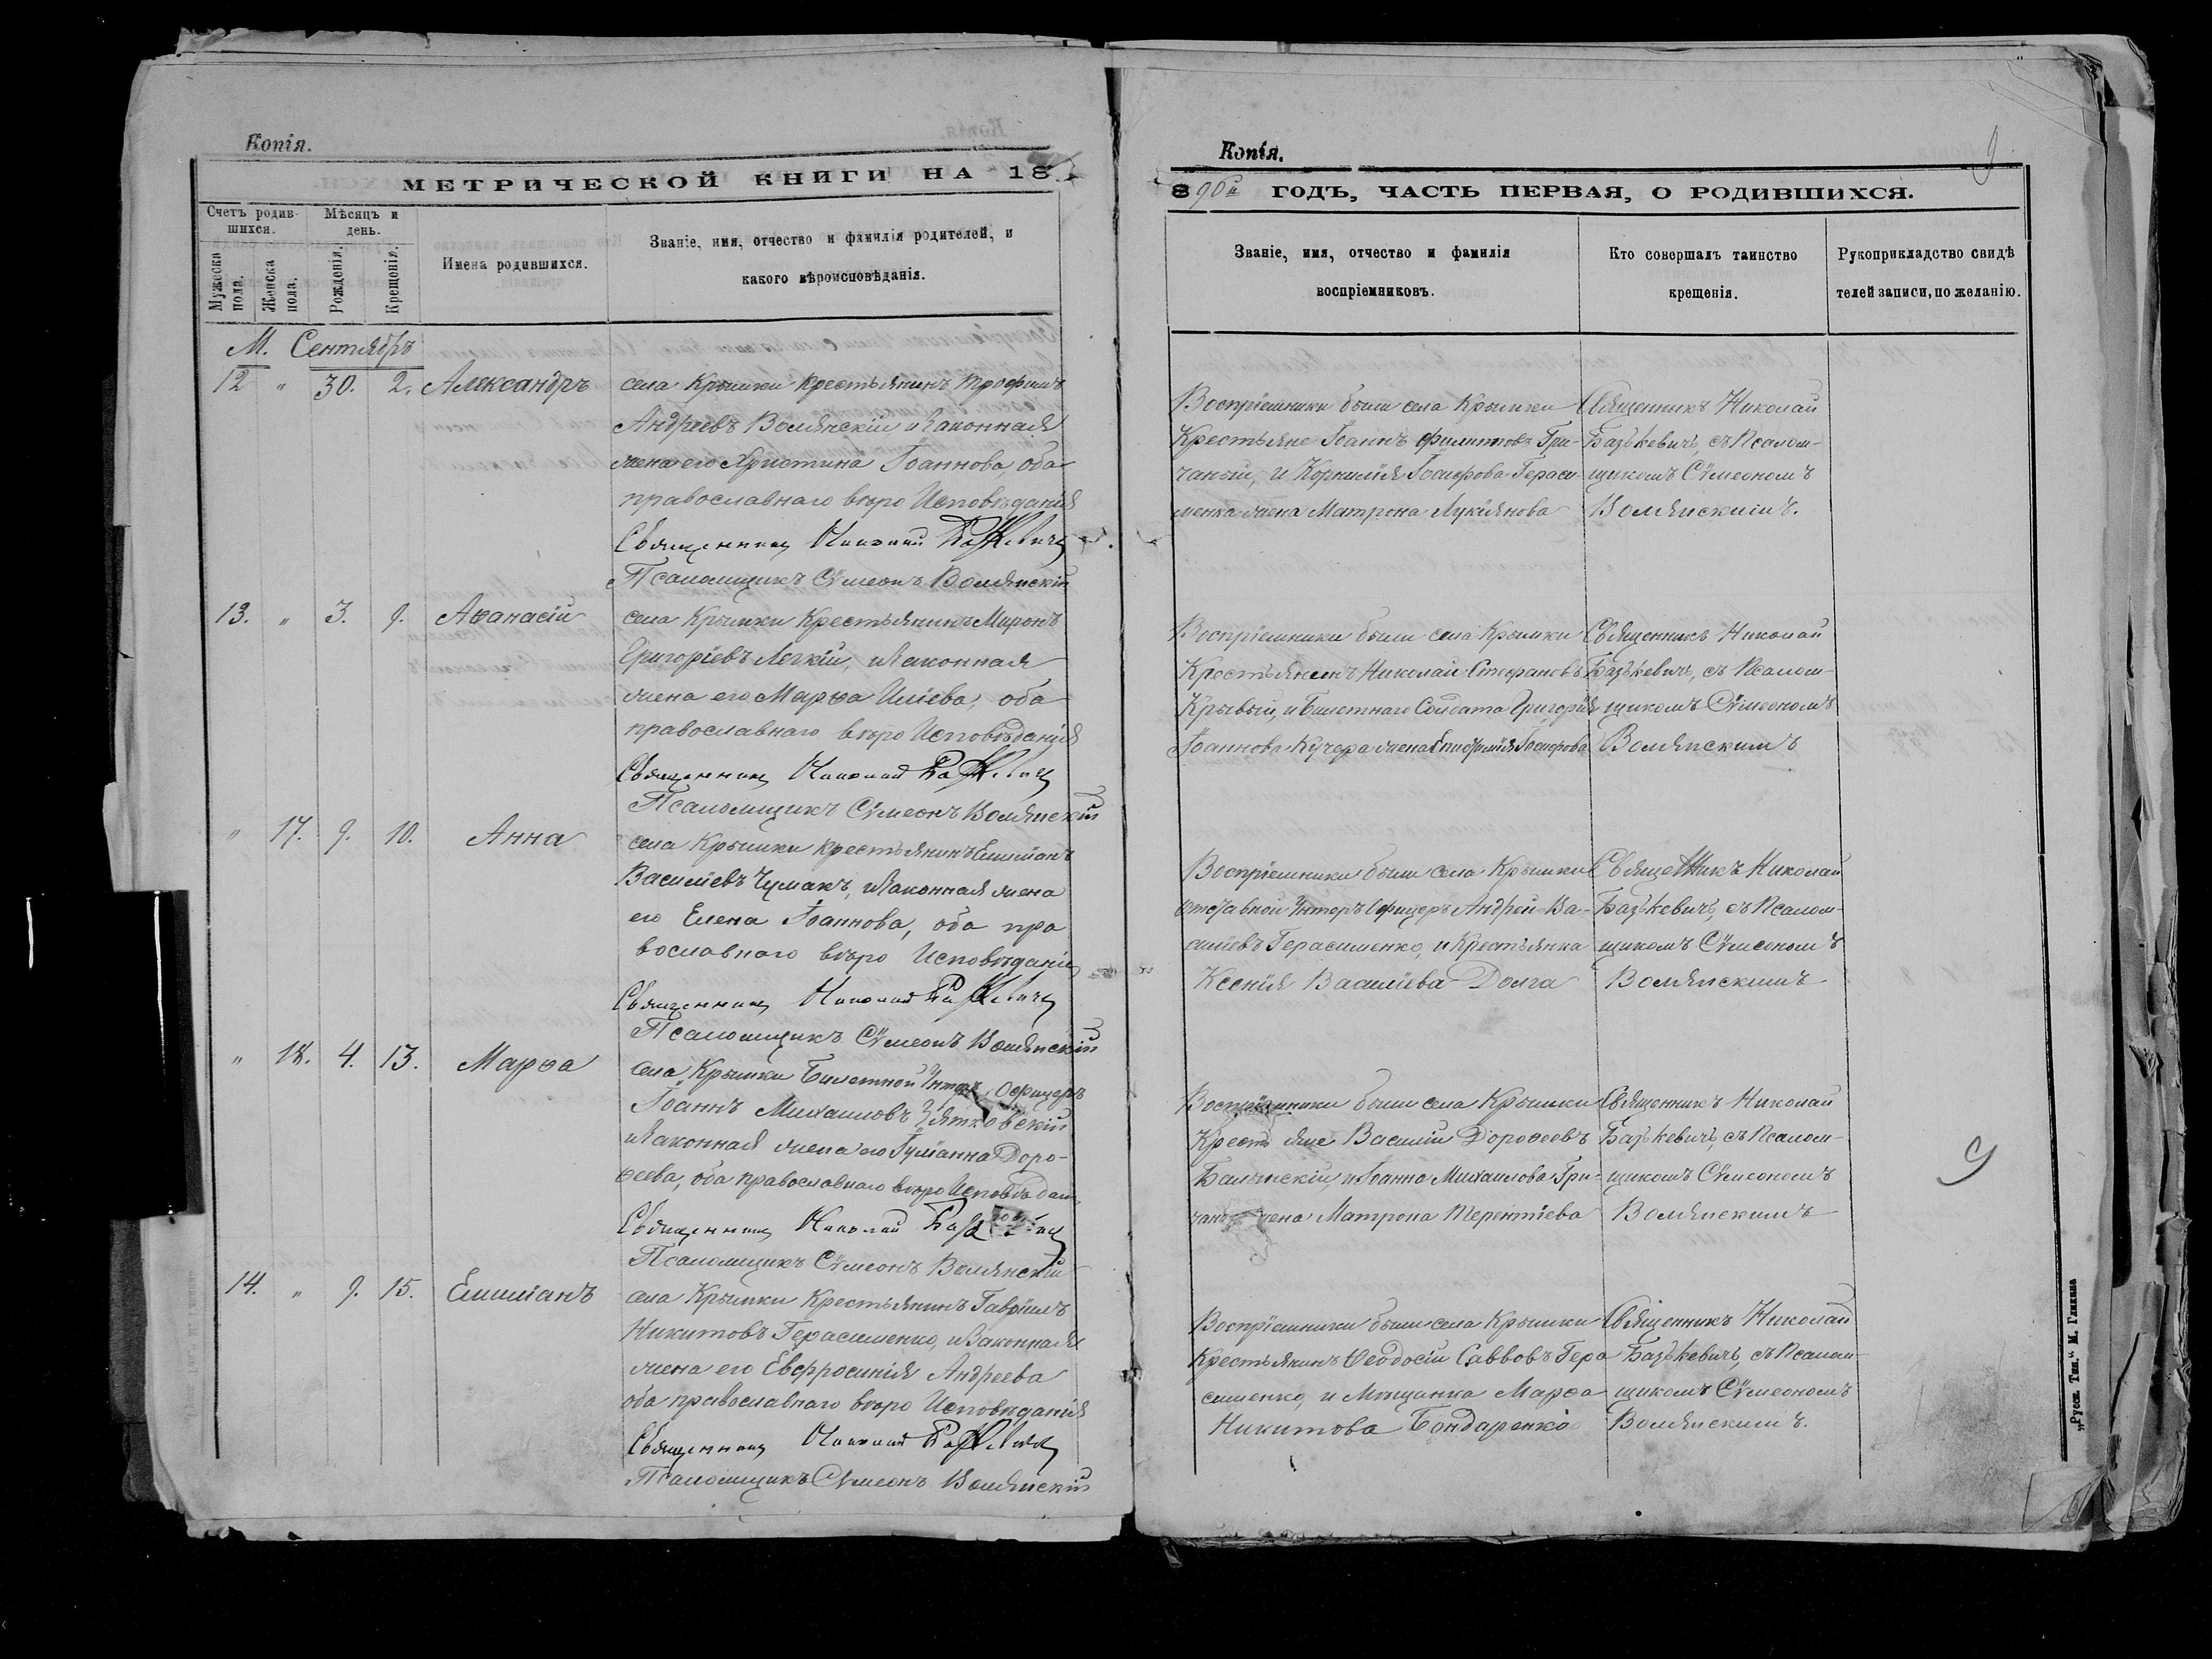 Копія.
МЕТРИЧЕСКОЙ КНИГИ НА 18
Счетъ родив-
шихся.
Мѣсяцъ и
день.
Мужеска
пола.
Женска
пола.
Рожденія.
Крещенія.
Имена родившихся.
Званіе, имя, отчество и фамилія родителей, и
какого вѣроисповѣданія.
М. Сентябрь
12 " 30. 2. Александръ
села Крымки крестьянинъ Трофимъ
Андреевъ Волянскій и законная
жена его Христина Іоаннова оба
православнаго вѣро Исповѣданія
Священникъ Николай Базькевичъ
Псаломщикъ Сѵмеонъ Волянскій
13. " 3. 9. Аѳанасій
села Крымки Крестьянинъ Миронъ
Григоріевъ Легкій, и законная
жена его Марѳа Иліева, оба
православнаго вѣро Исповѣданія
Священникъ Николай Базькевичъ
Псаломщикъ Сѵмеонъ Волянскій
" 17. 9. 10. Анна
села Крымки крестьянинъ Емиліанъ
Василіевъ Чумакъ, и законная жена
его Елена Іоаннова, оба пра
вославнаго вѣро Исповѣданія
Священникъ Николай Базькевичъ
Псаломщикъ Сѵмеонъ Волянскій
" 18. 4. 13. Марѳа
села Крымки Билетной Унтеръ Офицеръ
Іоаннъ Михаиловъ
и законная жена его Іуліанна Доро-
ѳеева, оба православнаго вѣро Исповѣдан
Священникъ Николай
Псаломщикъ Сѵмеонъ Волянскій
14. " 9. 15. Емиліанъ
села Крымки Крестьянинъ Гавріилъ
Никитовъ Герасименко, и Законная
жена его Евфросинія Андреева
оба православнаго вѣро Исповѣданія
Священникъ Николай Базькевичъ
Псаломщикъ Сѵмеонъ Волянскій
Копія.
9
890й ГОДЪ, ЧАСТЬ ПЕРВАЯ, О РОДИВШИХСЯ.
Званіе, имя, отчество и фамилія
воспріемниковъ.
Кто совершалъ таинство
крещенія.
Рукоприкладство свидѣ
телей записи, по желанію.
Воспріемники были села Крымки
Крестьяне Іоаннъ Филиповъ Гри-
чаный, и Корнилія Іосифова Гераси-
менка жена Матрона Лукіянова
Священникъ Николай
Базькевичъ, съ Псалом-
щикомъ Сѵмеономъ
Волянскимъ.
Воспріемники были села Крымки
Крестьянинъ Николай Стефановъ
Крывый, и Билетнаго Солдата Григорія
Іоаннова Кучера жена Епистимія Іосифова
Священникъ Николай
Базькевичъ, съ Псалом-
щикомъ Сѵмеономъ
Волянскимъ
Воспріемники были села Крымки
Отставной Унтеръ Офицеръ Андрей Ва-
силіевъ Герасименко, и Крестьянка
Ксенія Василіева Долга
Священникъ Николай
Базькевичъ, съ Псалом-
щикомъ Сѵмеономъ
Волянскимъ
Воспріемники были села Крымки
Крестьяне Василій Дороѳеовъ
и Іоанна Михаилова Гри-
жена Матрона Терентіева
Священникъ Николай
Базькевичъ, съ Псалом-
щикомъ Сѵмеономъ
Волянскимъ
9
Воспріемники были села Крымки
Крестьянинъ Ѳеодосій Савво­въ Гера
сименко, и Мѣщанка Марѳа
Никитова Бондаренко
Священникъ Николай
Базькевичъ, съ Псалом-
щикомъ Сѵмеономъ
Волянскимъ.
„Русск. Тип." М. Гликна